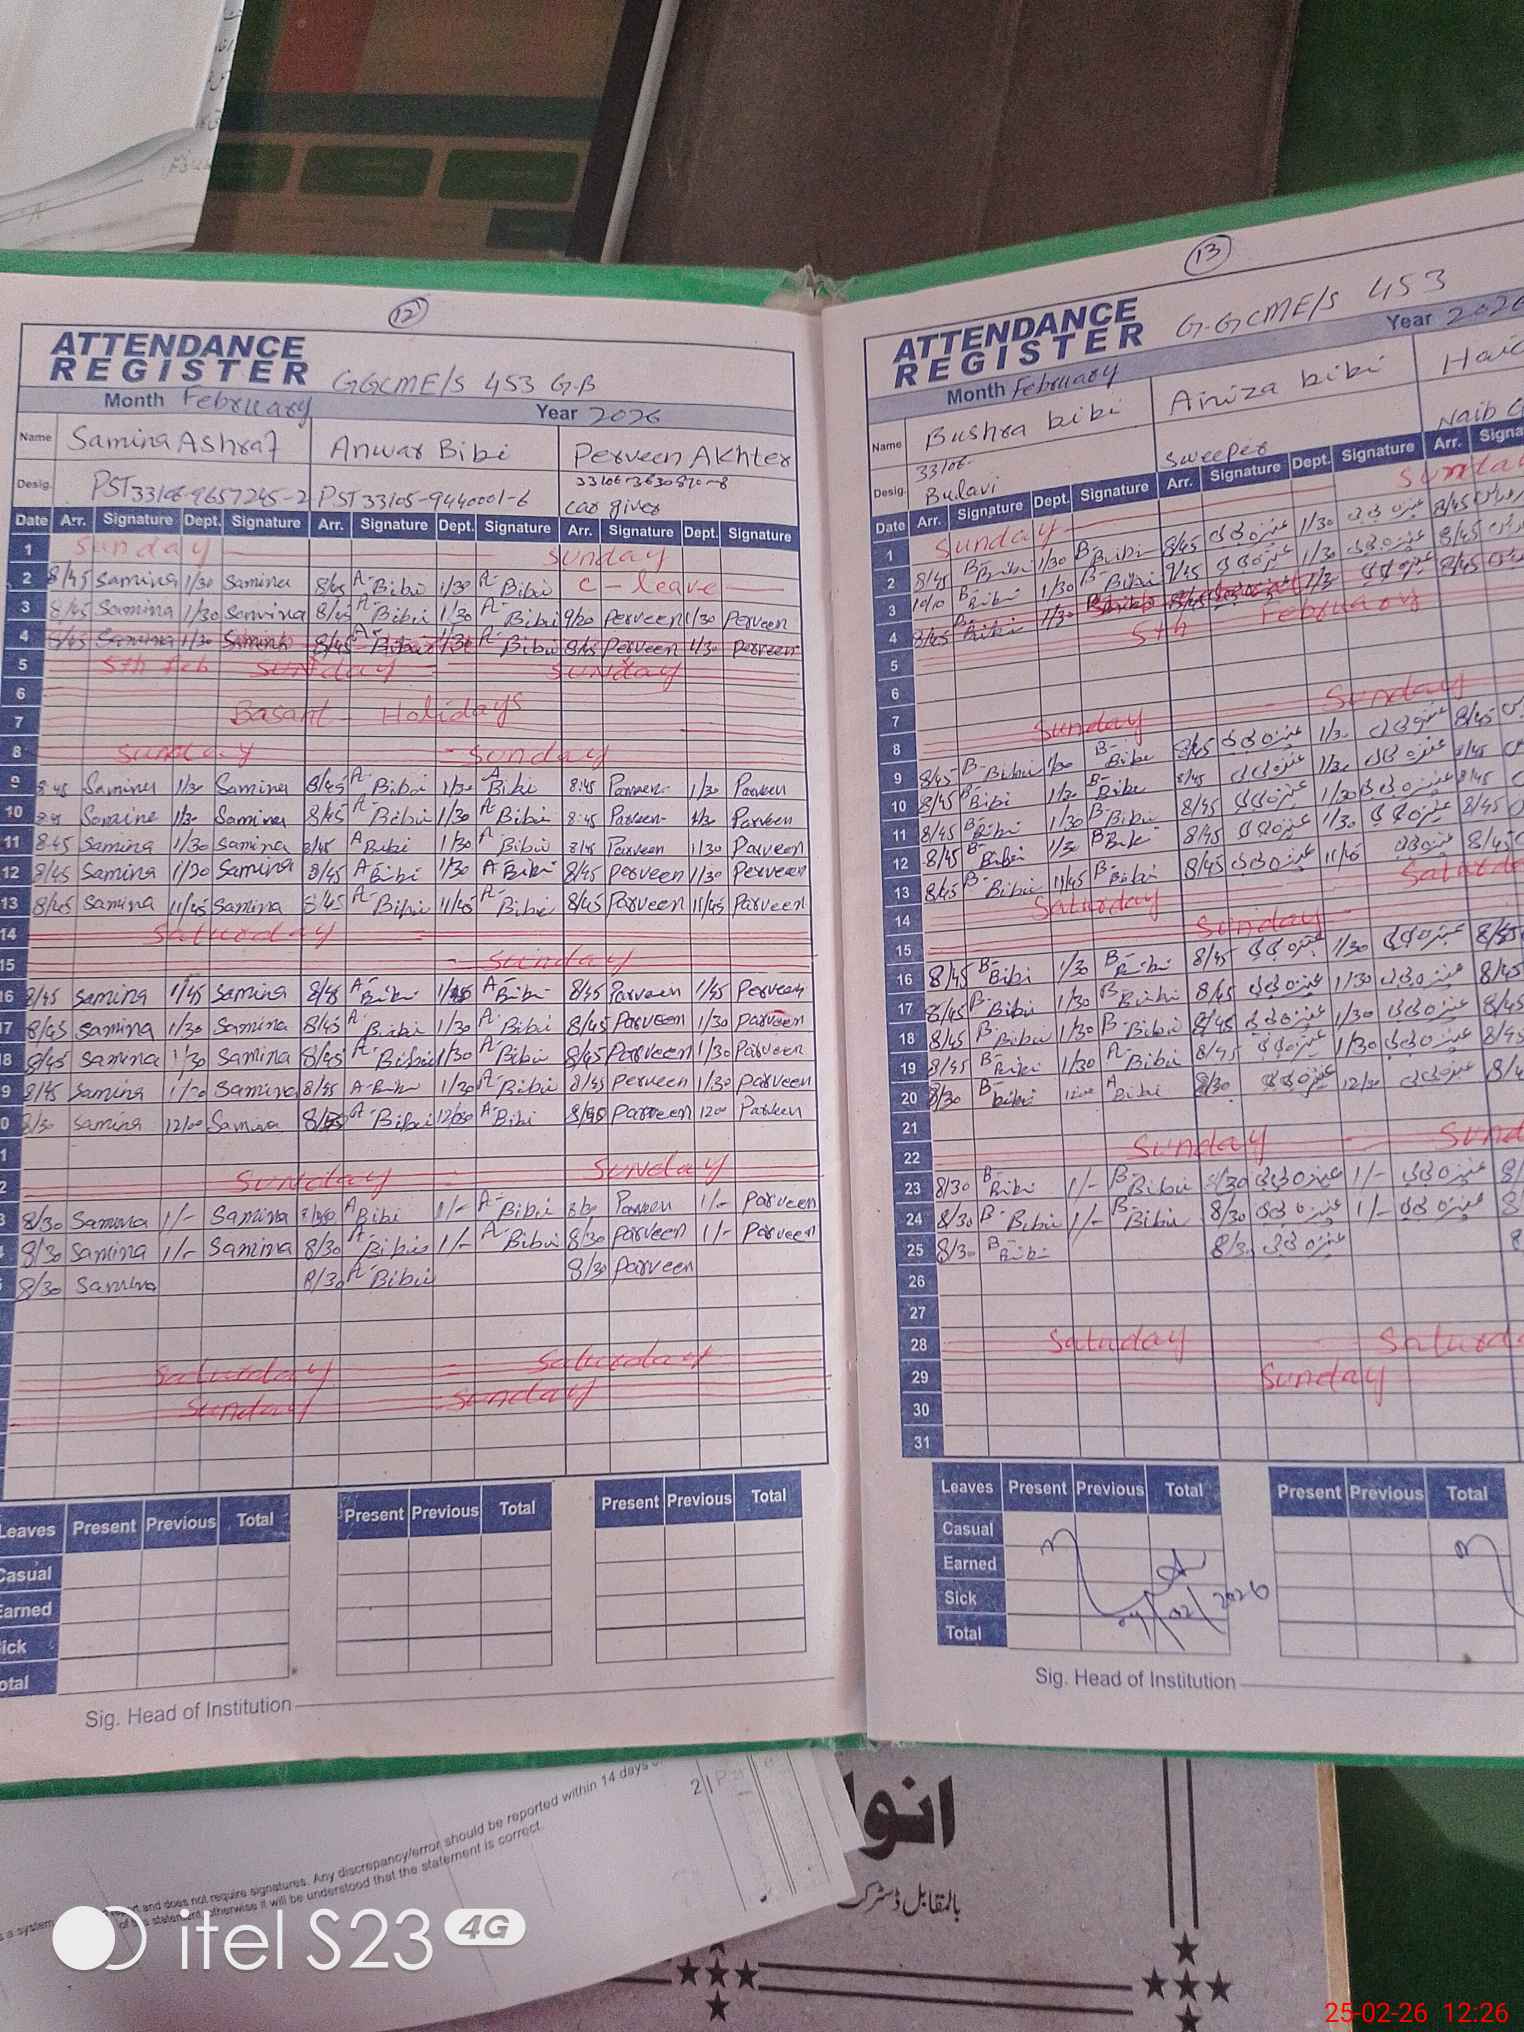 12
ATTENDANCE
REGISTER GGCME/S 453 G.B
Month February Year 2026
Name Samina Ashraf Anwar Bibi Perveen Akhter
33106-3630870-8
Desig. PST 33106-9657245-2 PST 33105-9440001-6 car giver
Date Arr. Signature Dept. Signature Arr. Signature Dept. Signature Arr. Signature Dept. Signature
1 Sunday Sunday
2 8/45 Samina 1/30 Samina 8/45 A-Bibi 1/30 A-Bibi C-leave
3 8/45 Samina 1/30 Samina 8/45 A-Bibi 1/30 A-Bibi 9/20 Perveen 1/30 Perveen
4 8/45 Samina 1/30 Samina 8/45 A-Bibi 1/30 A-Bibi 8/45 Perveen 1/30 Perveen
5 5th feb Sunday Sunday
6
7 Basant Holidays
8 Sunday Sunday
9 8:45 Samina 1/30 Samina 8/45 A-Bibi 1/30 A-Bibi 8:45 Parveen 1/30 Parveen
10 Samina 1/30 Samina 8/45 A-Bibi 1/30 A-Bibi 8:45 Parveen 1/30 Parveen
11 8:45 Samina 1/30 Samina 8/45 A Bibi 1/30 A Bibi 8/45 Parveen 1/30 Parveen
12 8/45 Samina 1/20 Samina 8/45 A Bibi 1/30 A Bibi 8/45 Perveen 1/30 Perveen
13 8/45 Samina 11/45 Samina 8/45 A-Bibi 11/45 A-Bibi 8/45 Parveen 11/45 Parveen
14 Saturday
15 Sunday
16 8/45 Samina 1/45 Samina 8/45 A-Bibi 1/45 A-Bibi 8/45 Parveen 1/45 Perveen
17 8/45 Samina 1/30 Samina 8/45 A-Bibi 1/30 A-Bibi 8/45 Parveen 1/30 Parveen
8 8/45 Samina 1/30 Samina 8/45 A-Bibi 1/30 A-Bibi 8/45 Parveen 1/30 Parveen
9 8/45 Samina Samina 8/45 A-Bibi 1/30 A-Bibi 8/45 Perveen 1/30 Parveen
0 8/30 Samina 12/00 Samina A-Bibi 12/00 A-Bibi Parveen 1200 Parveen
1
2 Sunday Sunday
3 8/30 Samina 1/- Samina A Bibi 1/- A-Bibi Parveen 1/- Parveen
8/30 Samina 1/- Samina 8/30 A-Bibi 1/- A-Bibi 8/30 Parveen 1/- Parveen
8/30 Samina 8/30 A-Bibi 8/30 Parveen
Saturday Saturday
Sunday Sunday
Leaves Present Previous Total Present Previous Total Present Previous Total
Casual
Earned
Sick
Total
Sig. Head of Institution
13
ATTENDANCE
REGISTER G-GCME/S 453
Month February Year 2026
Name Bushra bibi Aniza bibi
33106-
Desig. Bulavi Sweeper Naib
Date Arr. Signature Dept. Signature Arr. Signature Dept. Signature Arr.
1 Sunday Sunday
2 8/45 B-Bibi 1/30 B-Bibi 8/45 عنیزہ بی بی 1/30 عنیزہ بی بی 8/45
3 B-Bibi 1/30 B-Bibi 9/45 عنیزہ بی بی 1/30 عنیزہ بی بی 8/45
4 8/45 B-Bibi 1/30 عنیزہ بی بی 8/45
5 5th February
6
7 Sunday Sunday
8
9 8/45 B-Bibi 1/30 B-Bibi 8/45 عنیزہ بی بی 1/30 عنیزہ بی بی 8/45
10 8/45 B-Bibi 1/30 B-Bibi 8/45 عنیزہ بی بی 1/30 عنیزہ بی بی 8/45
11 8/45 B-Bibi 1/30 B-Bibi 8/45 عنیزہ بی بی 1/30 عنیزہ بی بی 8/45
12 8/45 B-Bibi 1/30 B Bibi 8/45 عنیزہ بی بی 1/30 عنیزہ بی بی 8/45
13 8/45 B-Bibi 11/45 B-Bibi 8/45 عنیزہ بی بی 11/45 عنیزہ بی بی 8/45
14 Saturday Saturday
15 Sunday
16 8/45 B-Bibi 1/30 B-Bibi 8/45 عنیزہ بی بی 1/30 عنیزہ بی بی 8/45
17 8/45 B-Bibi 1/30 B-Bibi 8/45 عنیزہ بی بی 1/30 عنیزہ بی بی 8/45
18 8/45 B-Bibi 1/30 B-Bibi 8/45 عنیزہ بی بی 1/30 عنیزہ بی بی 8/45
19 8/45 B-Bibi 1/30 A-Bibi 8/45 عنیزہ بی بی 1/30 عنیزہ بی بی 8/45
20 8/30 B-bibi 1200 A Bibi 8/30 عنیزہ بی بی 12/00 عنیزہ بی بی
21
22 Sunday
23 8/30 B-Bibi 1/- B-Bibi 8/30 عنیزہ بی بی 1/- عنیزہ بی بی
24 8/30 B-Bibi 1/- B-Bibi 8/30 عنیزہ بی بی 1/- عنیزہ بی بی
25 8/30 B-Bibi عنیزہ بی بی
26
27
28 Saturday
29 Sunday
30
31
Leaves Present Previous Total Present Previous Total
Casual
Earned
Sick
Total
Sig. Head of Institution
and does not require signatures. Any discrepancy/error should be reported within 14 days
statement, otherwise it will be understood that the statement is correct.
انوا
بالمقابل ڈسٹرکٹ
itel S23 4G
25-02-26 12:26